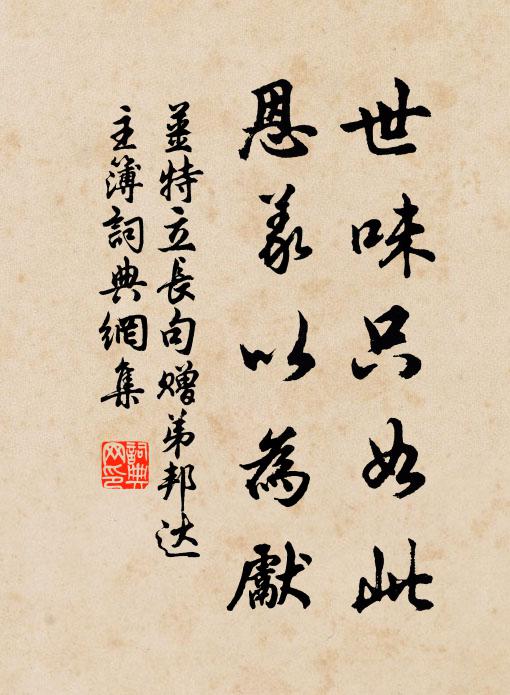 世味只如此
恩義以為獻
姜特立長句贈弟邦达
主簿詞典網集
詞典
网印